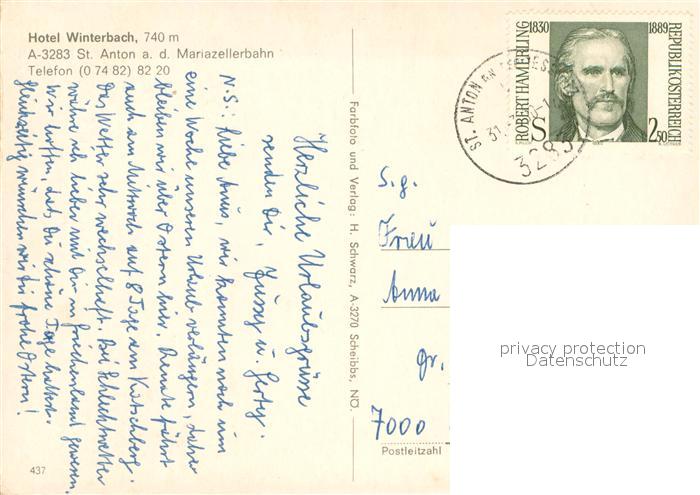 Hotel Winterbach, 740 m
A-3283 St. Anton a. d. Mariazellerbahn
Telefon (0 74 82) 82 20
Herzliche Urlaubsgrüsse
senden Dir, Jussy u. Gerty.
N.S: Liebe Anus, wir konnten noch um
eine Woche unseren Urlaub verlängern, daher
bleiben wir über Ostern hier. Renate fährt
auch am Mittwoch auf 8 Tage am Katschberg.
Das Wetter sehr wechselhaft. Bei Schlechtwetter
wäre ich lieber mit Dir in Griechenland gewesen.
Wir hoffen, daß Du schöne Tage hattest.
Gleichzeitig wünschen wir Dir frohe Ostern!
437
Farbfoto und Verlag: H. Schwarz, A-3270 Scheibbs, NÖ.
1830 1889
ROBERT HAMERLING
REPUBLIK ÖSTERREICH
S 2,50
ST. ANTON AN DER
3283
S. g.
Frau
Anna
gr.
7000
Postleitzahl
privacy protection
Datenschutz